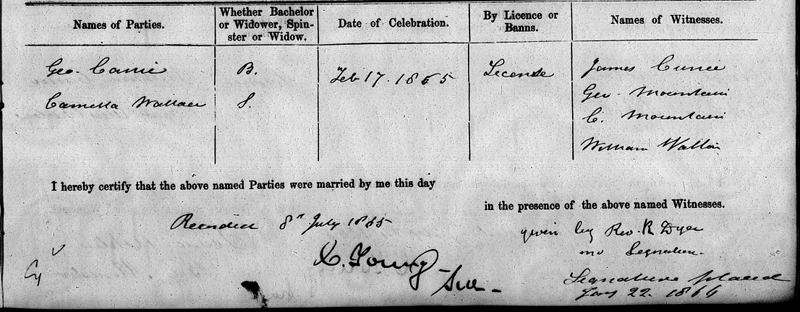 Names of Parties.
Whether Bachelor
or Widower, Spin-
ster or Widow.
Date of Celebration.
By Licence or
Banns.
Names of Witnesses.
Geo. B. Feb 17. 1865 Licence James
Camella Wallace S. Geo. Mountain
C. Mountain
William
I hereby certify that the above named Parties were married by me this day
in the presence of the above named Witnesses.
Recorded 8th July 1865
given by Rev. R Dyer
no Signature.
X. Young
Signature placed
Jany 22. 1866